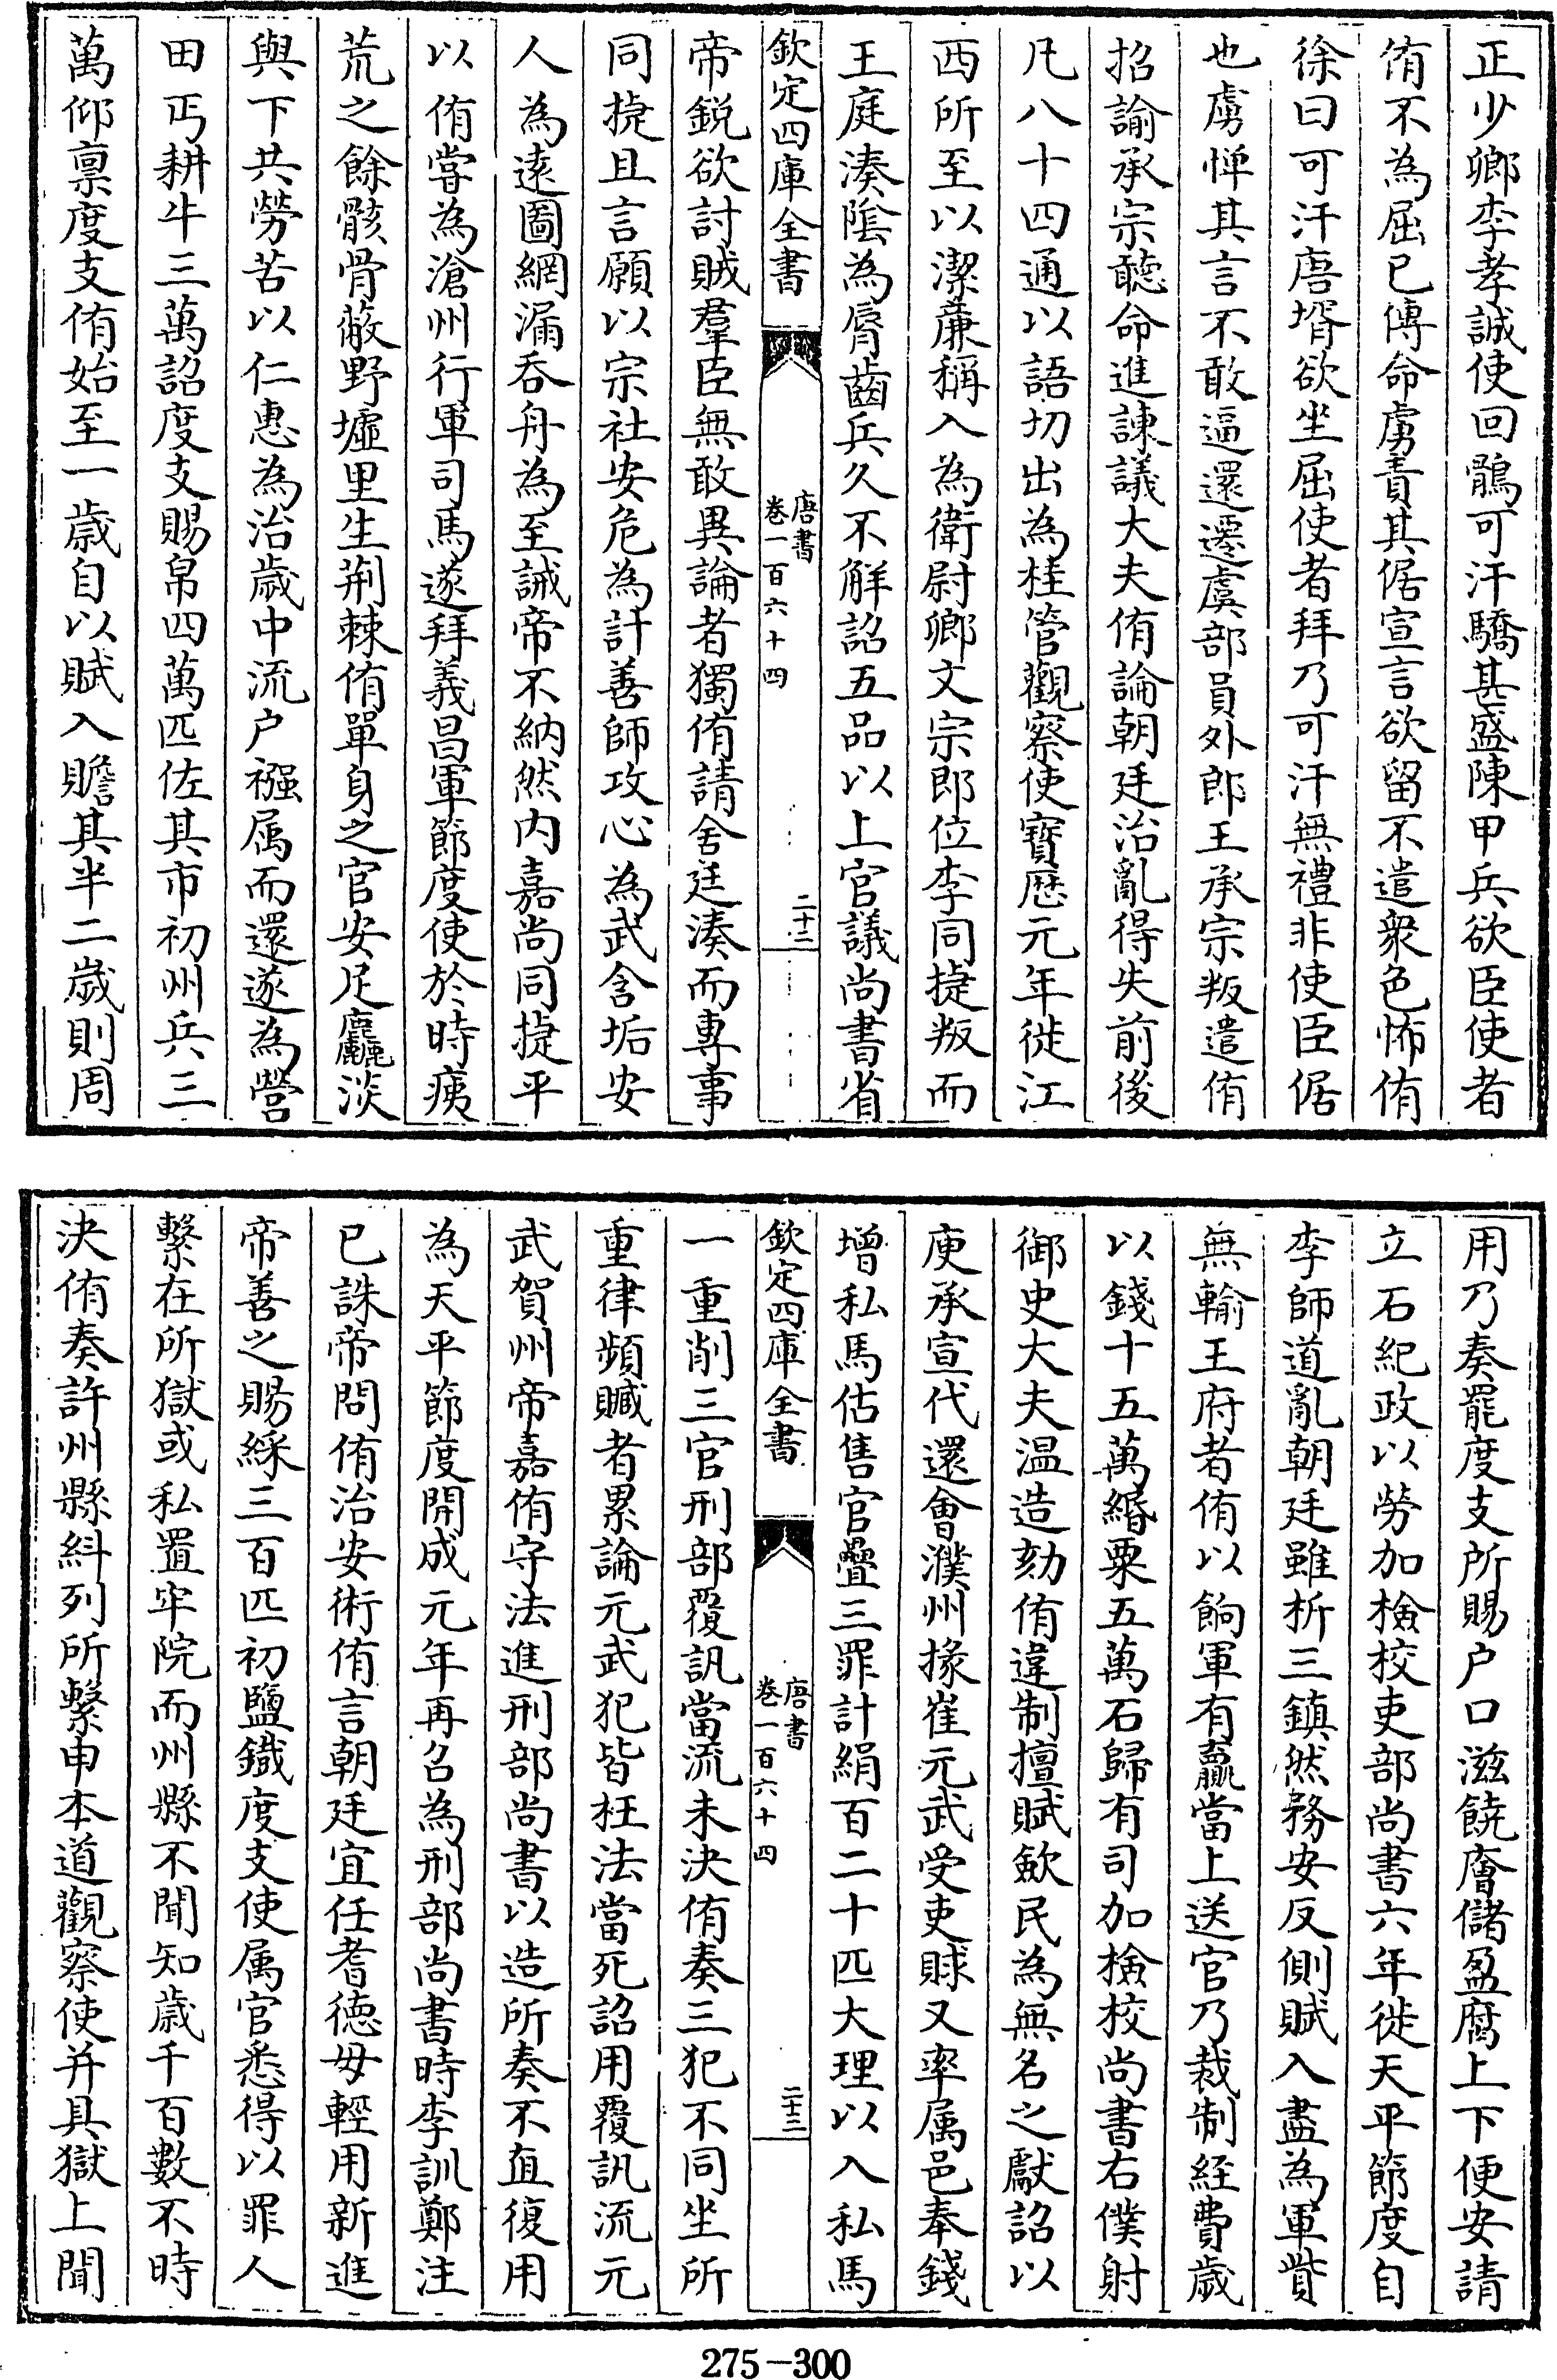 正少卿李孝誠使回鶻可汗驕甚盛陳甲兵欲臣使者
侑不為屈已傳命虜責其倨宣言欲留不遣衆色怖侑
徐曰可汗唐壻欲坐屈使者拜乃可汗無禮非使臣倨
也虜憚其言不敢逼還遷虞部員外郎王承宗叛遣侑
招諭承宗聽命進諫議大夫侑論朝廷治亂得失前後
凡八十四通以語切出為桂管觀察使寶厯元年徙江
西所至以潔亷稱入為衛尉卿文宗郎位李同捷叛而
王庭湊陰為脣齒兵久不解詔五品以上官議尚書省
欽定四庫全書
唐書
卷一百六十四
二十二
帝銳欲討賊羣臣無敢異論者獨侑請舍廷湊而專事
同捷且言願以宗社安危為計善師攻心為武含垢安
人為遠圖網漏吞舟為至誡帝不納然内嘉尚同捷平
以侑嘗為滄州行軍司馬遂拜義昌軍節度使於時痍
荒之餘骸骨蔽野墟里生荆棘侑單身之官安足麤淡
與下共勞苦以仁惠為治歳中流户襁属而還遂為營
田丐耕牛三萬詔度支賜帛四萬匹佐其市初州兵三
萬仰禀度支侑始至一歳自以賦入贍其半二歳則周
用乃奏罷度支所賜户口滋饒廥儲盈腐上下便安請
立石紀政以勞加檢校吏部尚書六年徙天平節度自
李師道亂朝廷雖析三鎮然務安反側賦入盡為軍貲
無輸王府者侑以餉軍有贏當上送官乃裁制經費歳
以錢十五萬緡粟五萬石歸有司加檢校尚書右僕射
御史大夫温造劾侑違制擅賦歛民為無名之獻詔以
庾承宣代還會濮州掾崔元武受吏賕又率属邑奉錢
增私馬估售官疊三罪計絹百二十匹大理以入私馬
欽定四庫全書
唐書
卷一百六十四
二十二
一重削三官刑部覆訊當流未決侑奏三犯不同坐所
重律頻贓者累論元武犯皆枉法當死詔用覆訊流元
武賀州帝嘉侑守法進刑部尚書以造所奏不直復用
為天平節度開成元年再召為刑部尚書時李訓鄭注
已誅帝問侑治安術侑言朝廷宜任耆德毋輕用新進
帝善之賜綵三百匹初鹽鐵度支使属官悉得以罪人
繫在所獄或私置牢院而州縣不聞知歳千百數不時
決侑奏許州縣糾列所繫申本道觀察使并具獄上聞
275-300